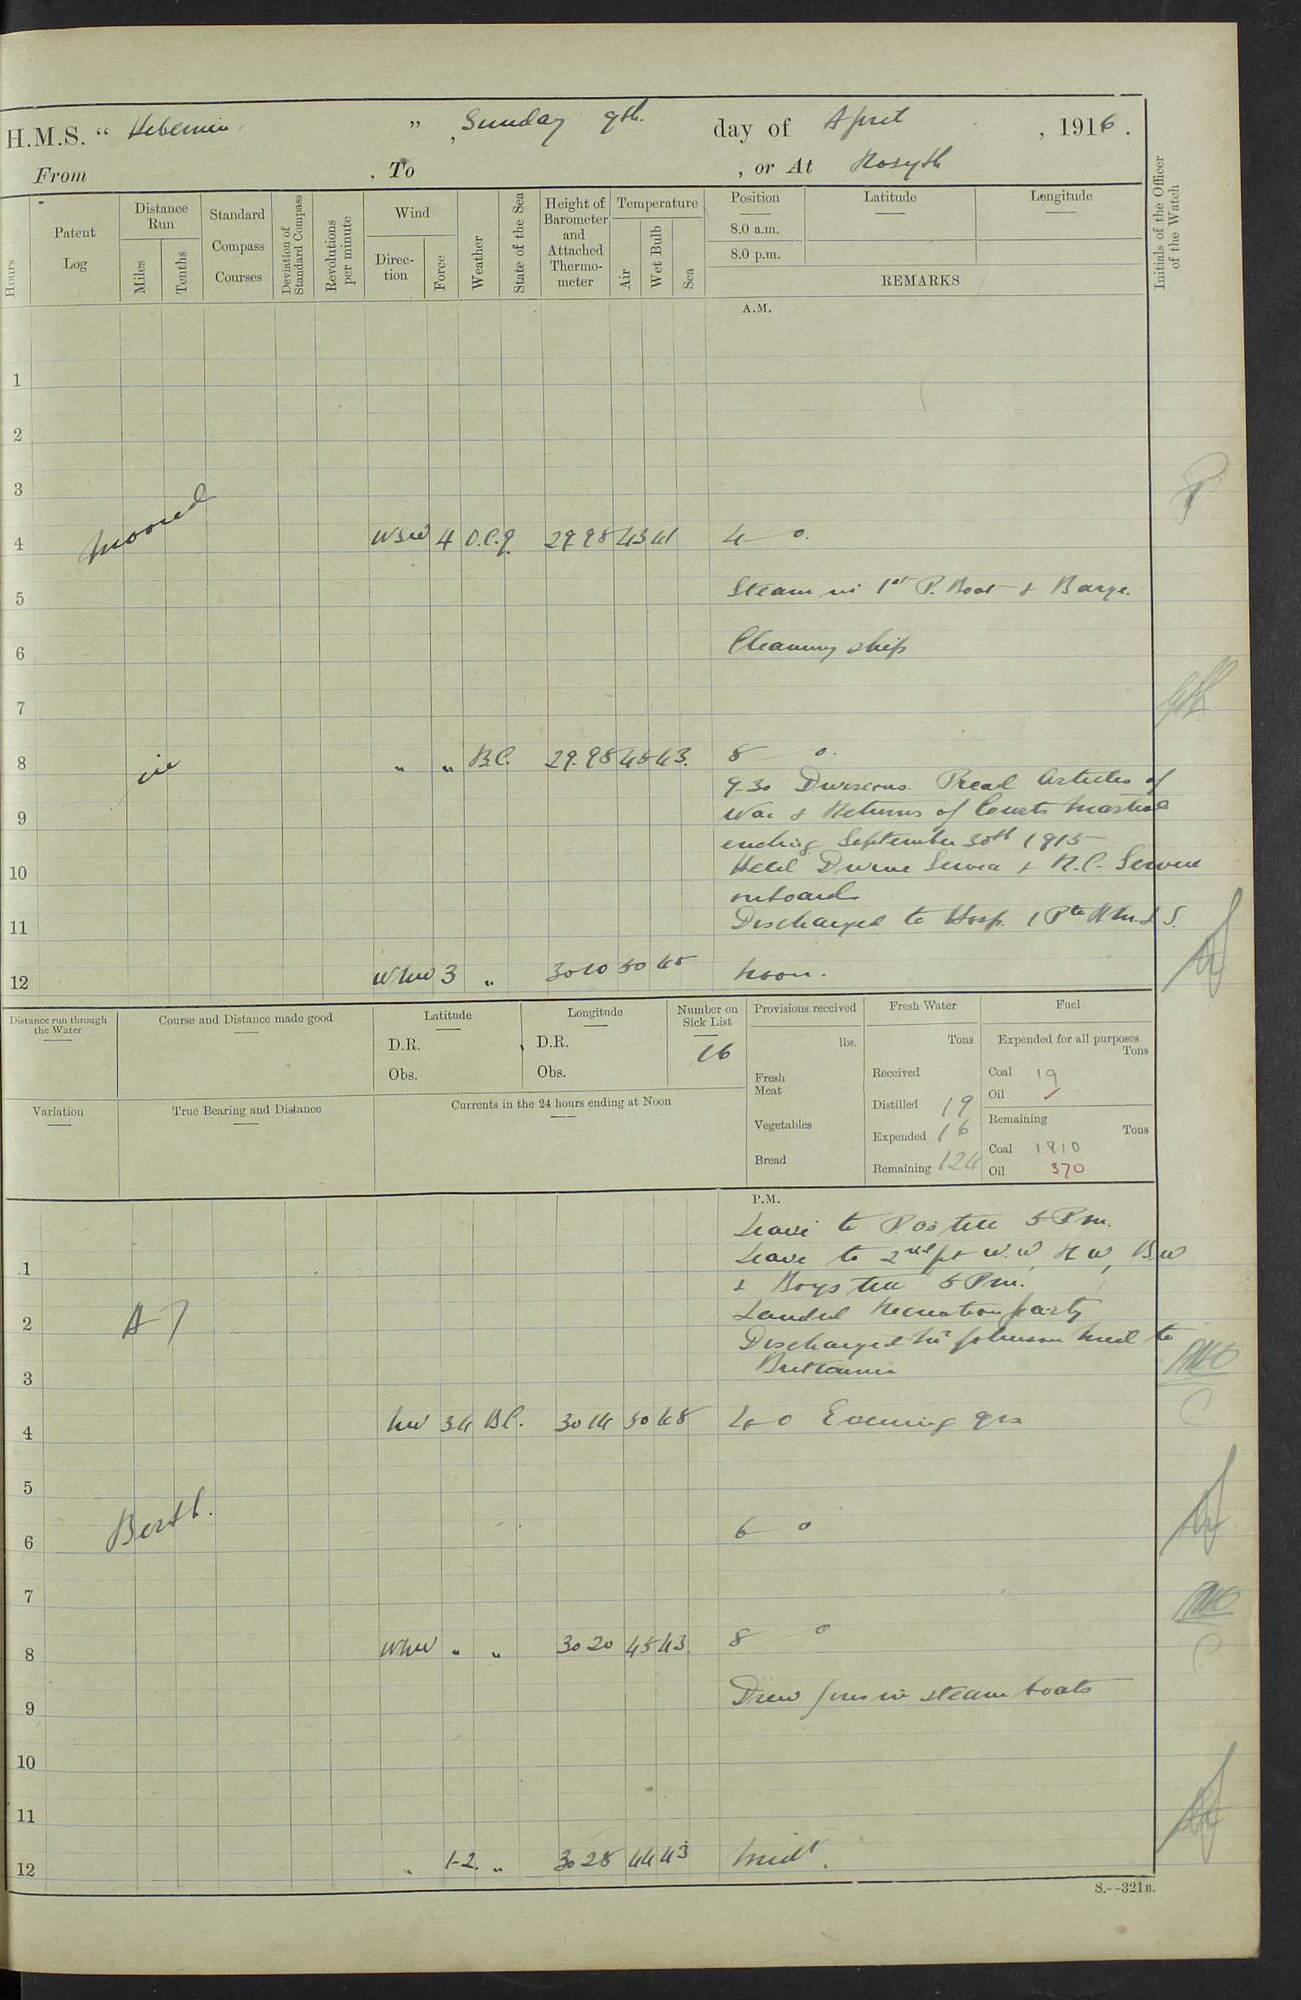 H.M.S. “ Hibernia ” , Sunday 9th. day of April , 1916 .
From , To , or At Rosyth
Hours
Patent Log
Distance Run
Miles
Tenths
Standard Compass Courses
Deviation of Standard Compass
Revolutions per minute
Wind
Direction
Force
Weather
State of the Sea
Height of Barometer and Attached Thermometer
Temperature
Air
Wet Bulb
Sea
Position
8.0 a.m.
8.0 p.m.
Latitude
Longitude
REMARKS
Initials of the Officer of the Watch
A.M.
1
2
3
Moored
4 WSW 4 O.C.q. 29.98 43 41 4 0.
5 Steam in 1st P. Boat & Barge.
6 Cleaning ship
7
8 in „ „ B.C. 29.98 45 43. 8 0.
9.30 Divisions. Read Articles of
9 War & Returns of Courts Martial
ending September 30th 1915
10 Held Divine Service & R.C. Service
onboard
11 Discharged to Hosp. 1 Pte R.M.L.I.
12 WNW 3 „ 30 10 50 45 Noon.
Distance run through the Water
Course and Distance made good
Latitude
D.R.
Obs.
Longitude
D.R.
Obs.
Number on Sick List
16
Provisions received
lbs.
Fresh Meat
Vegetables
Bread
Fresh Water
Tons
Received
Distilled 19
Expended 16
Remaining 124
Fuel
Expended for all purposes
Tons
Coal 19
Oil ✓
Remaining
Tons
Coal 1810
Oil 370
Variation
True Bearing and Distance
Currents in the 24 hours ending at Noon
P.M.
Leave to P.Os till 5 Pm.
1 Leave to 2nd pt W.W, RW, BW
& Boys till 5 Pm.
2 A 7 Landed Recreation party
Discharged Mr Johnson Mid to
3 Britannia
4 NW 3.4 B.C. 30 14 50 48 4 0 Evening qrs
5
Berth.
6 6 0
7
8 WNW „ „ 30 20 45 43. 8 0
9 Drew fires in steam boats
10
11
12 „ 1-2. „ 30 28 44 43 Midt.
S.--321B.